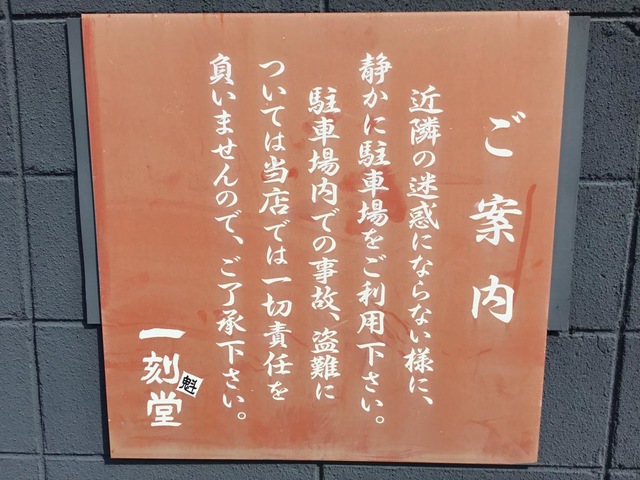 ご案内
近隣の迷惑にならない様に、
静かに駐車場をご利用下さい。
駐車場内での事故、盗難に
ついては当店では一切責任を
負いませんので、ご了承下さい。
一刻堂
魁